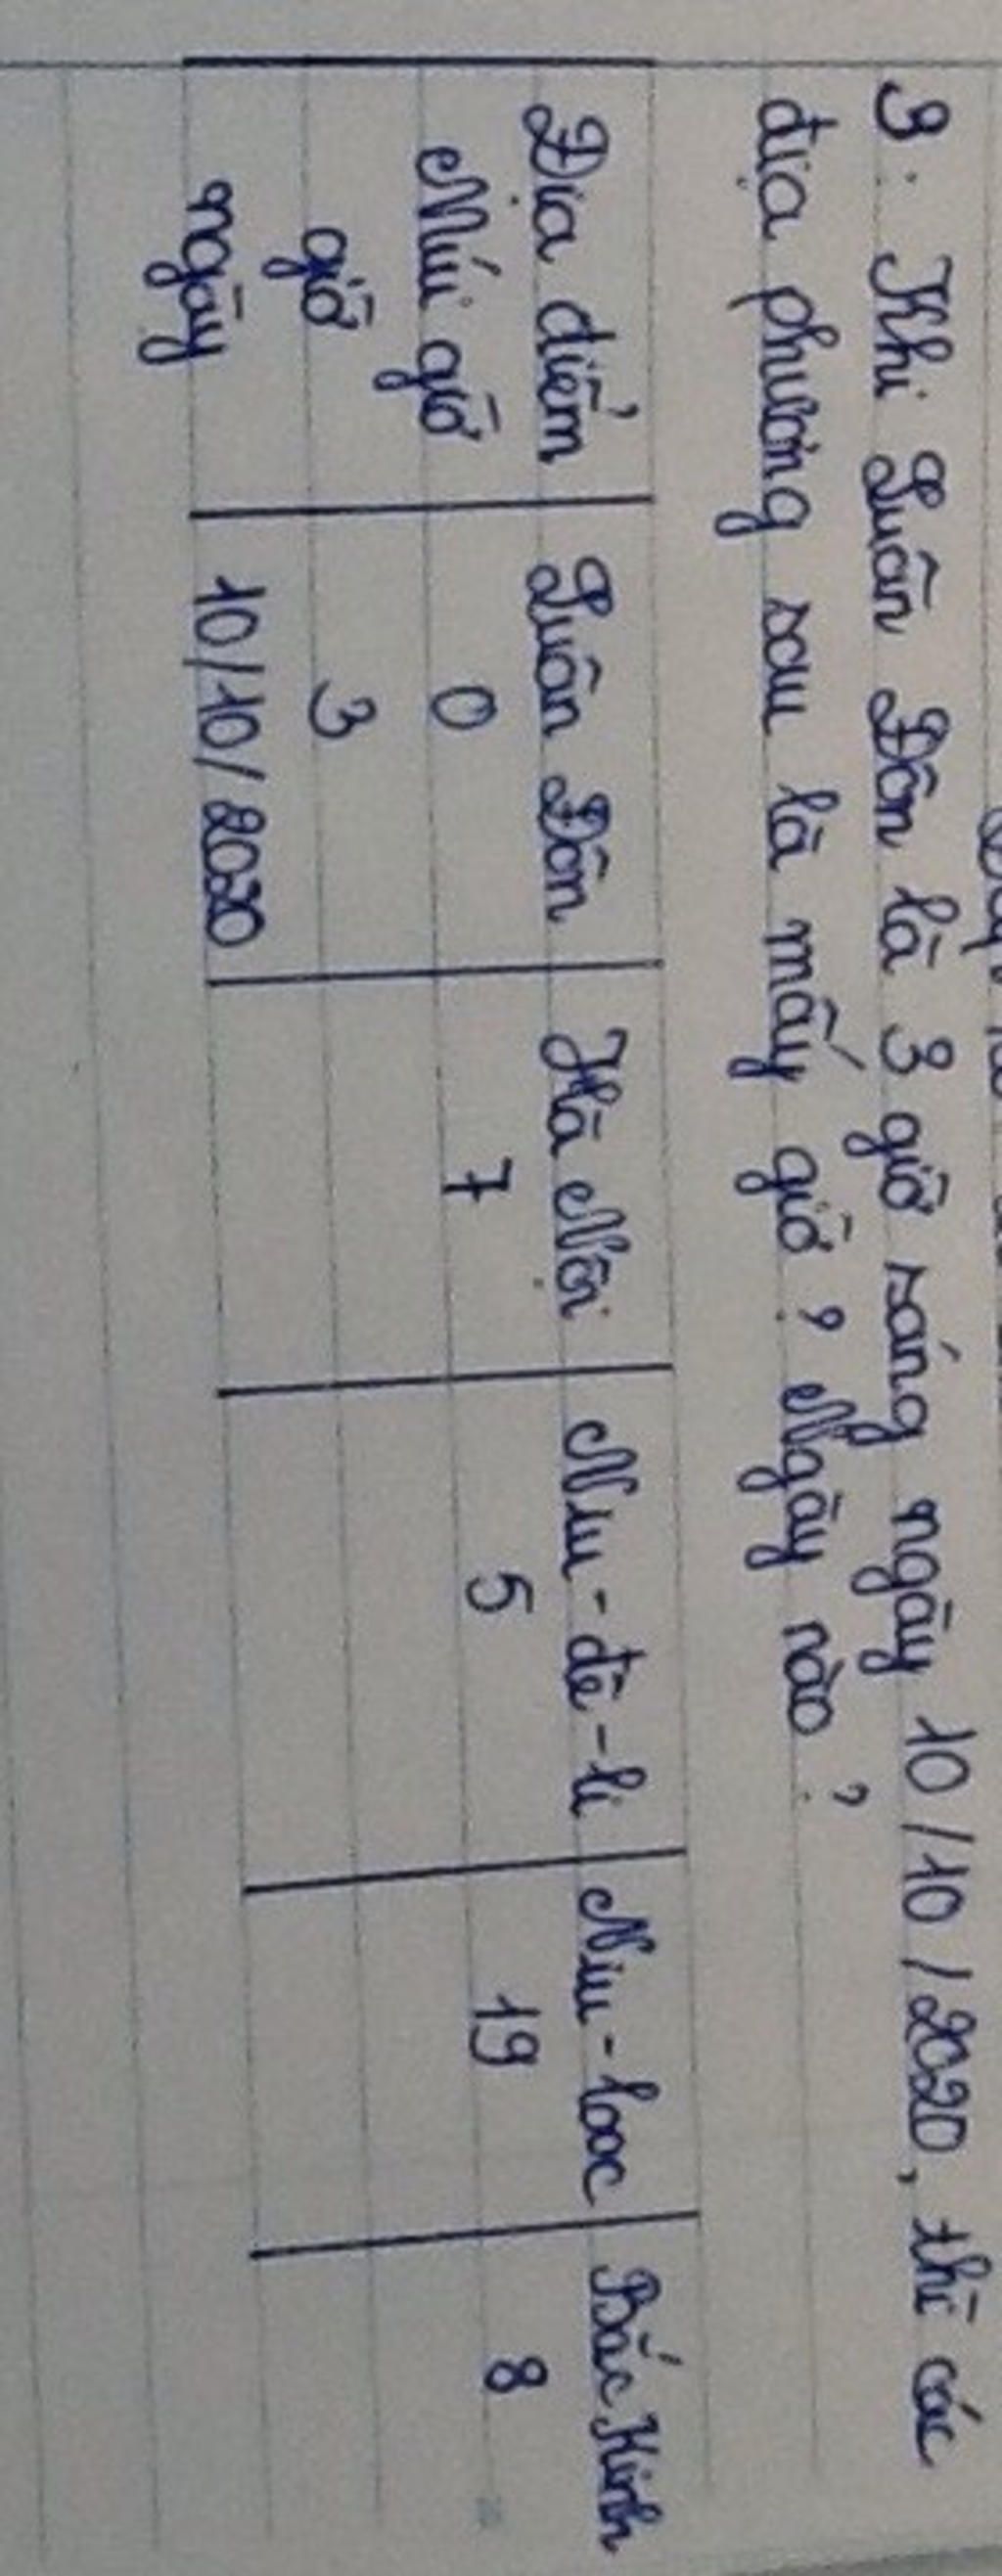 3: Khi Luân Đôn là 3 giờ sáng ngày 10/10/2020, thì các
địa phương sau là mấy giờ? Ngày nào?
Địa điểm Luân Đôn Hà Nội Niu-đê-li Niu-looc Bắc Kinh
Múi giờ 0 7 5 19 8
giờ 3
ngày 10/10/2020